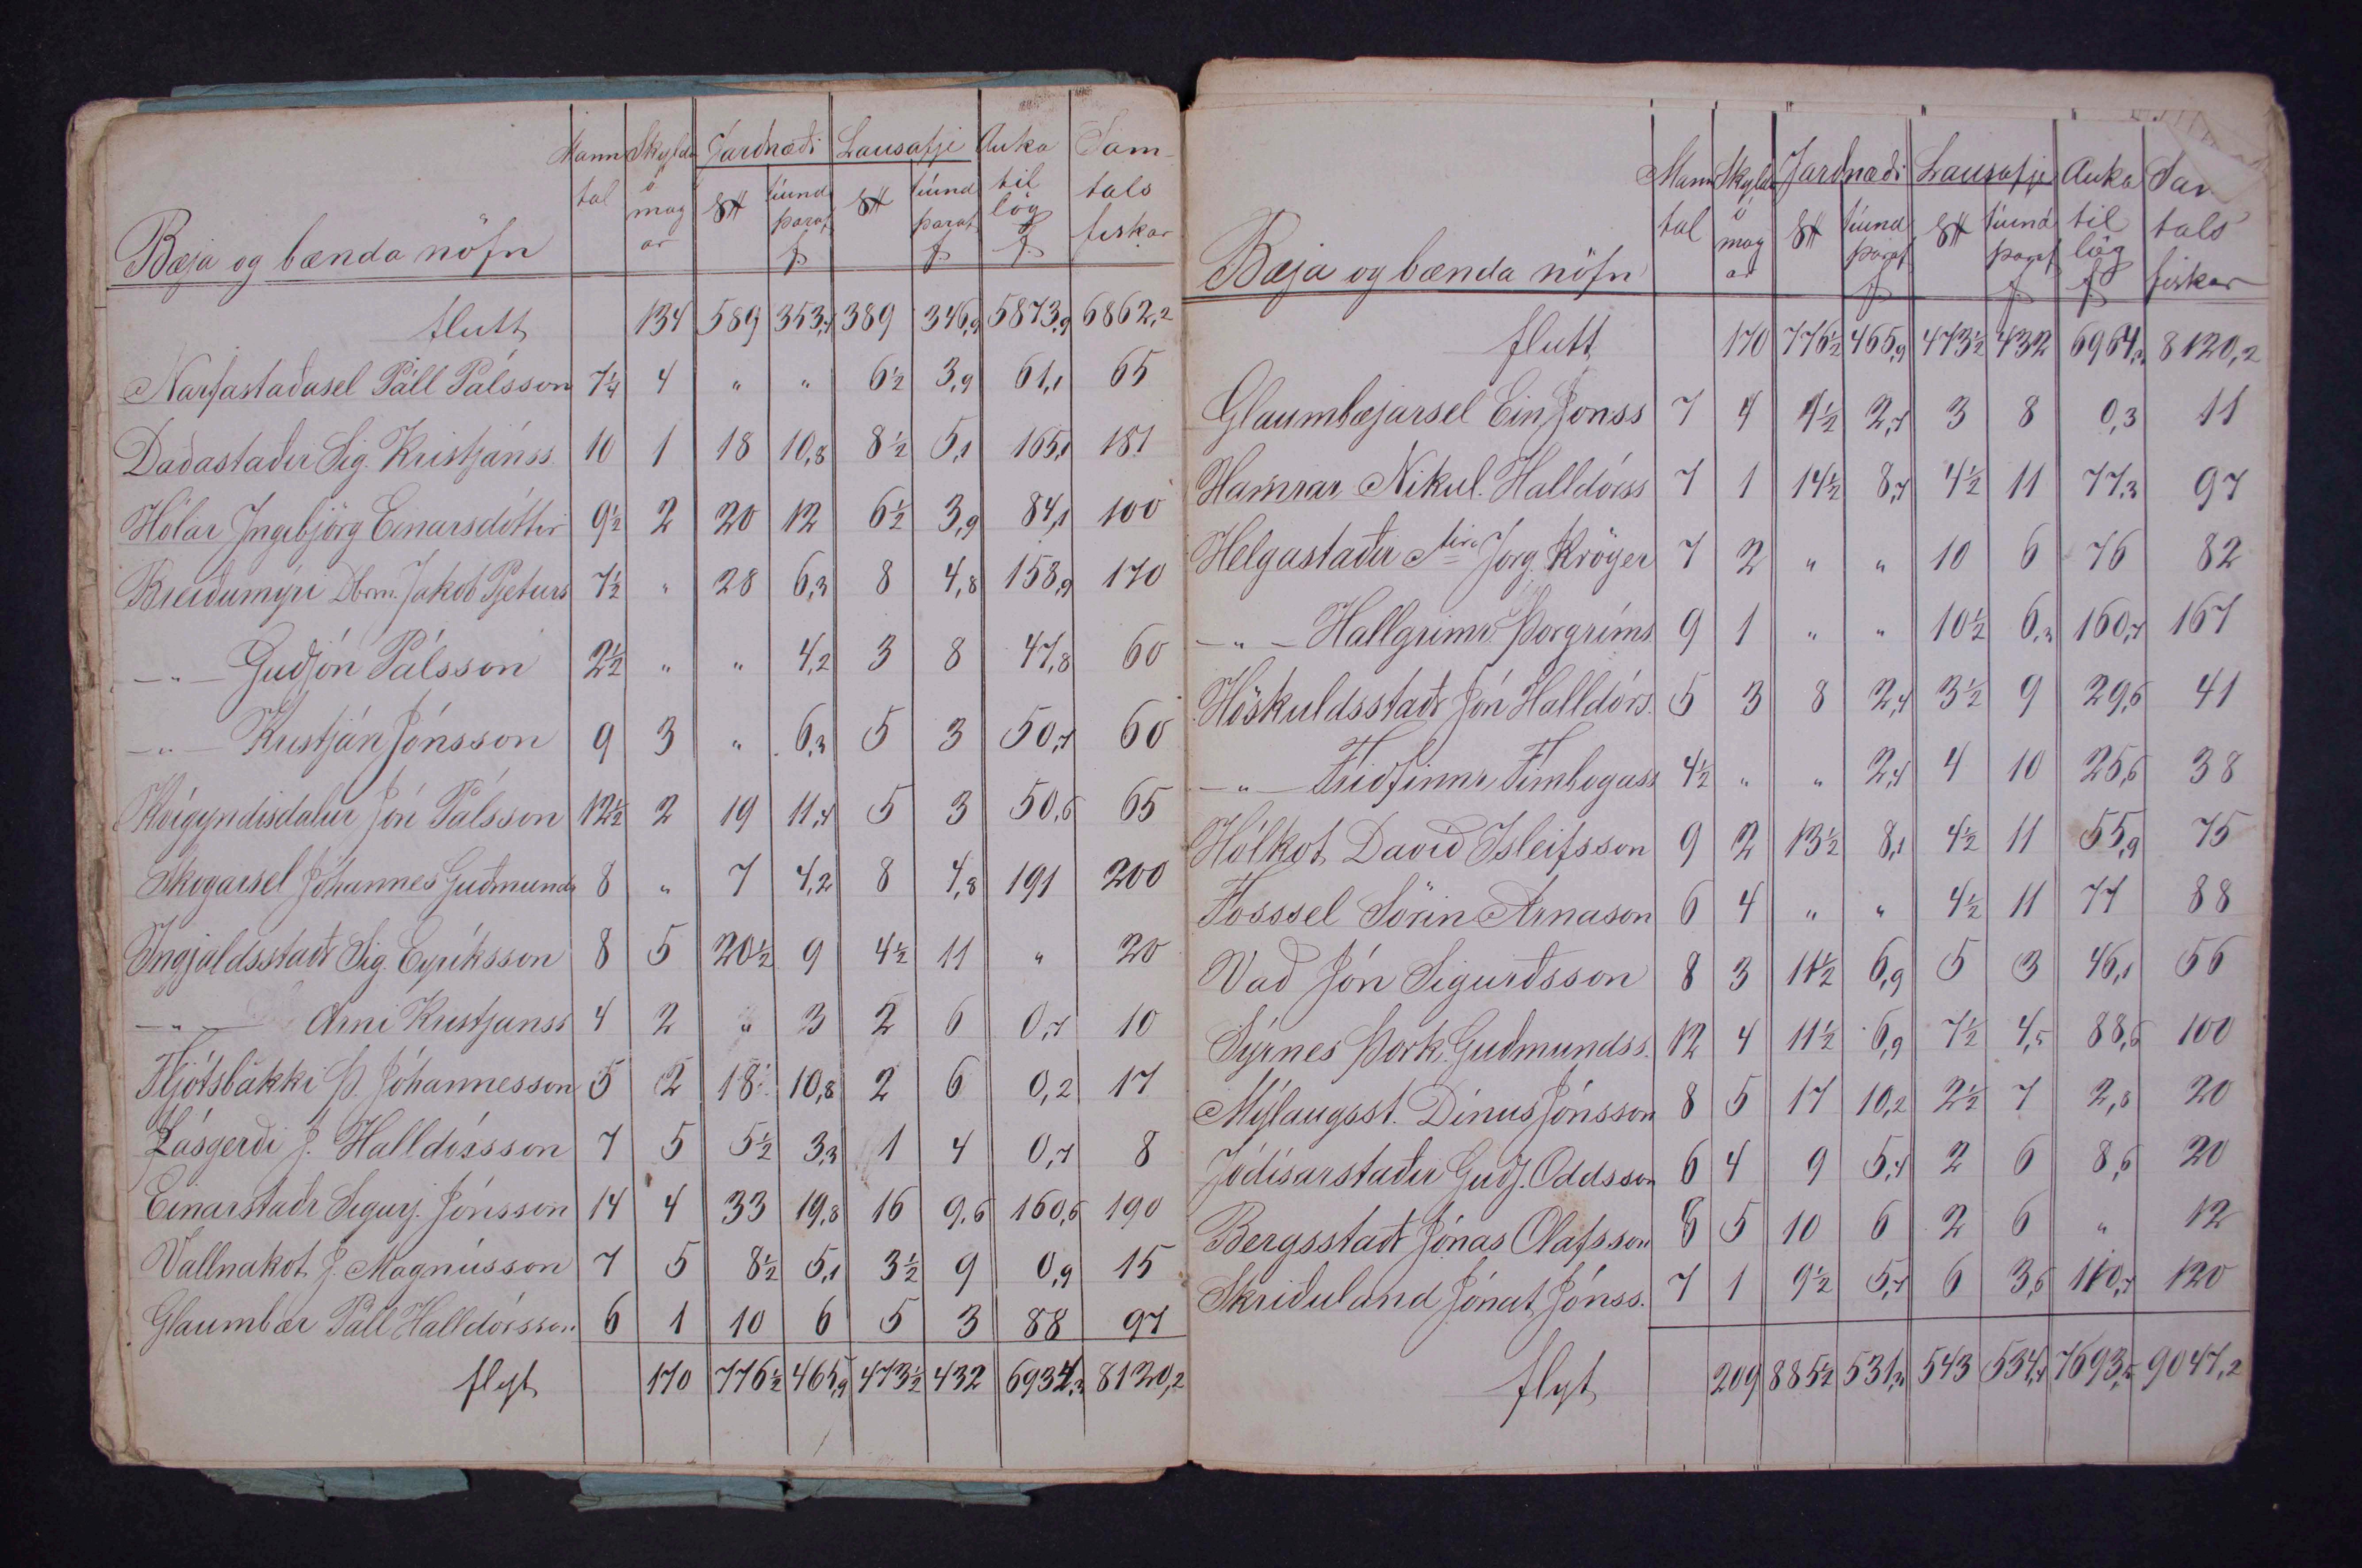 Mann Skyldu Jarðnæði Lausafje Auka Sam-
tal ó mag ar tíund þaraf f. tíund þaraf f. til lög f. tals fiskar
Bæja og bænda nöfn
flutt 134 589 353,4 389 346,9 5873,9 6862,2
Narfastaðasel Páll Pálsson 7¼ 4 " " 6½ 3,9 61,1 65
Daðastaðir Sig. Kristjánss. 10 1 18 10,8 8½ 5,1 165,1 181
Hólar Ingibjörg Einarsdóttir 9½ 2 20 12 6½ 3,9 84,1 100
Breiðumýri Dbrm. Jakob Pjeturs 7½ " 28 6,3 8 4,8 158,9 170
—"— Guðjón Pálsson 2½ " " 4,2 3 8 47,8 60
—"— Kristján Jónsson 9 3 " 6,3 5 3 50,7 60
Kvígyndisdalur Jón Pálsson 12½ 2 19 11,4 5 3 50,6 65
Skógarsel Jóhannes Guðmunds 8 " 7 4,2 8 4,8 191 200
Ingjaldsstaðr Sig. Eyríksson 8 5 20½ 9 4½ 11 " 20
—"— Árni Kristjánss 4 2 " 3 2 6 0,7 10
Fljótsbakki Þ. Jóhannesson 5 2 18 10,8 2 6 0,2 17
Lásgerði J. Halldórsson 7 5 5½ 3,3 1 4 0,7 8
Einarstaðr Sigurj. Jónsson 14 4 33 19,8 16 9,6 160,6 190
Vallnakot J. Magnússon 7 5 8½ 5,1 3½ 9 0,9 15
Glaumbær Páll Halldórsson 6 1 10 6 5 3 88 97
flyt 170 776½ 465,9 473½ 432 6934,3 8120,2
Mann Skyldu Jarðnæði Lausafje Auka Sam
tal ó mag ar tíund þaraf f. tíund þaraf f. til lög f. tals fiskar
Bæja og bænda nöfn
flutt 170 776½ 465,9 473½ 432 6964,3 8120,2
Glaumbæjarsel Ein Jónss 7 4 4½ 2,7 3 8 0,3 11
Hamrar Nikul. Halldórss 7 1 14½ 8,7 4½ 11 77,3 97
Helgastaðir Jörg Kröyer 7 2 " " 10 6 76 82
—"— Hallgrímr Þorgríms 9 1 " " 10½ 6,3 160,7 167
Höskuldsstaðr Jón Halldórs. 5 3 8 2,4 3½ 9 29,6 41
—"— Friðfinnr Finnbogass 4½ " " 2,4 4 10 25,6 38
Hólkot Davíð Ísleifsson 9 2 13½ 8,1 4½ 11 55,9 75
Fosssel Sörin Árnason 6 4 " " 4½ 11 77 88
Vað Jón Sigurðsson 8 3 11½ 6,9 5 3 46,1 56
Sýrnes Þork. Guðmundss. 12 4 11½ 6,9 7½ 4,5 88,6 100
Mýlaugsst. Dínus Jónsson 8 5 17 10,2 2½ 7 2,8 20
Jódísarstaðir Guðj. Oddsson 6 4 9 5,4 2 6 8,6 20
Bergsstaðr Jónas Olafsson 8 5 10 6 2 6 " 12
Skriðuland Jónat. Jónss. 7 1 9½ 5,7 6 3,6 110,7 120
flyt 209 885½ 531,3 543 534,4 7693,5 9047,2